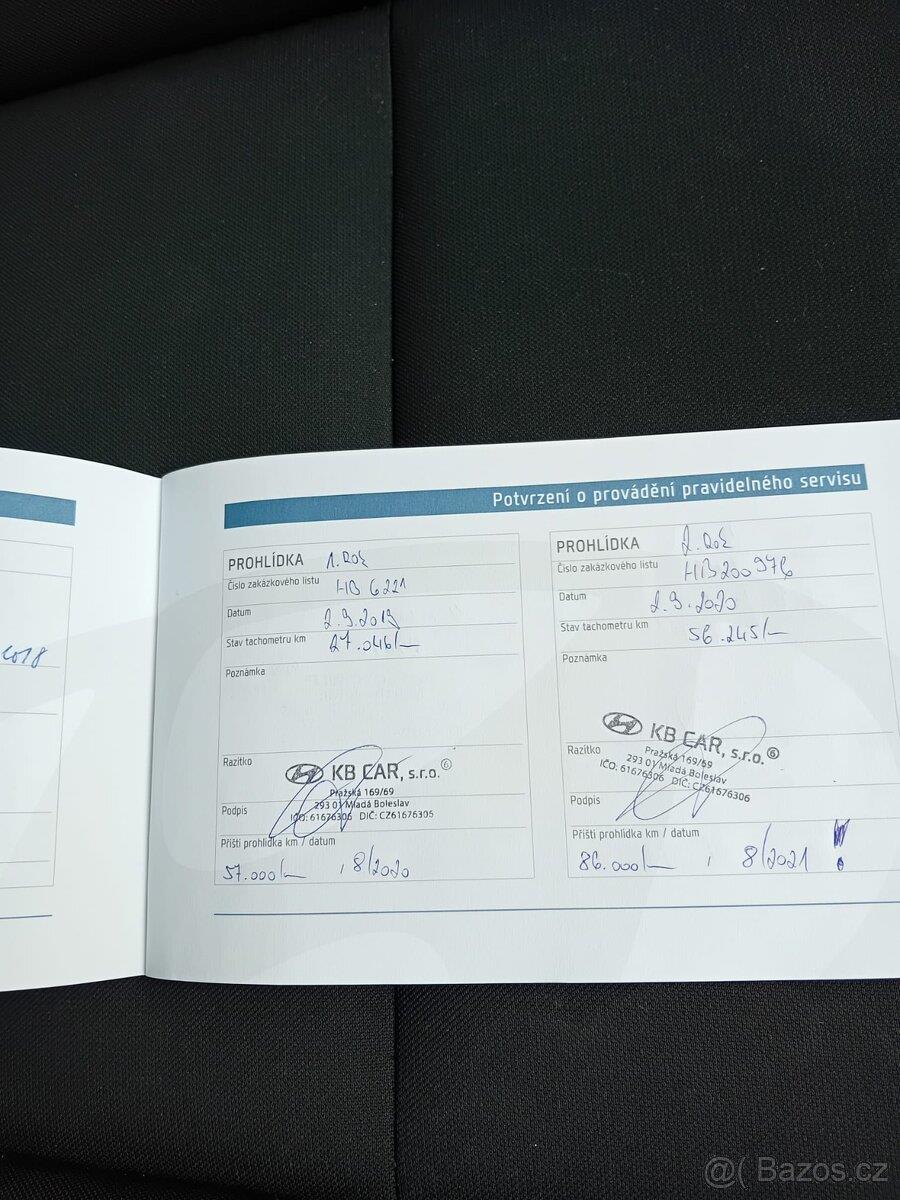 2018
Potvrzení o provádění pravidelného servisu
PROHLÍDKA 1. Rok
Číslo zakázkového listu HB 6221
Datum 2.9.2019
Stav tachometru km 27.046/-
Poznámka
Razítko
KB CAR, s.r.o. 6
Pražská 169/69
293 01 Mladá Boleslav
IČO: 61676306 DIČ: CZ61676306
Podpis
Příští prohlídka km / datum
57.000/- , 8/2020
PROHLÍDKA 2. Rok
Číslo zakázkového listu HB200976
Datum 2.9.2020
Stav tachometru km 56.245/-
Poznámka
KB CAR, s.r.o. 6
Razítko
Pražská 169/69
293 01 Mladá Boleslav
IČO: 61676306 DIČ: CZ61676306
Podpis
Příští prohlídka km / datum
86.000/- , 8/2021 !
@( Bazos.cz